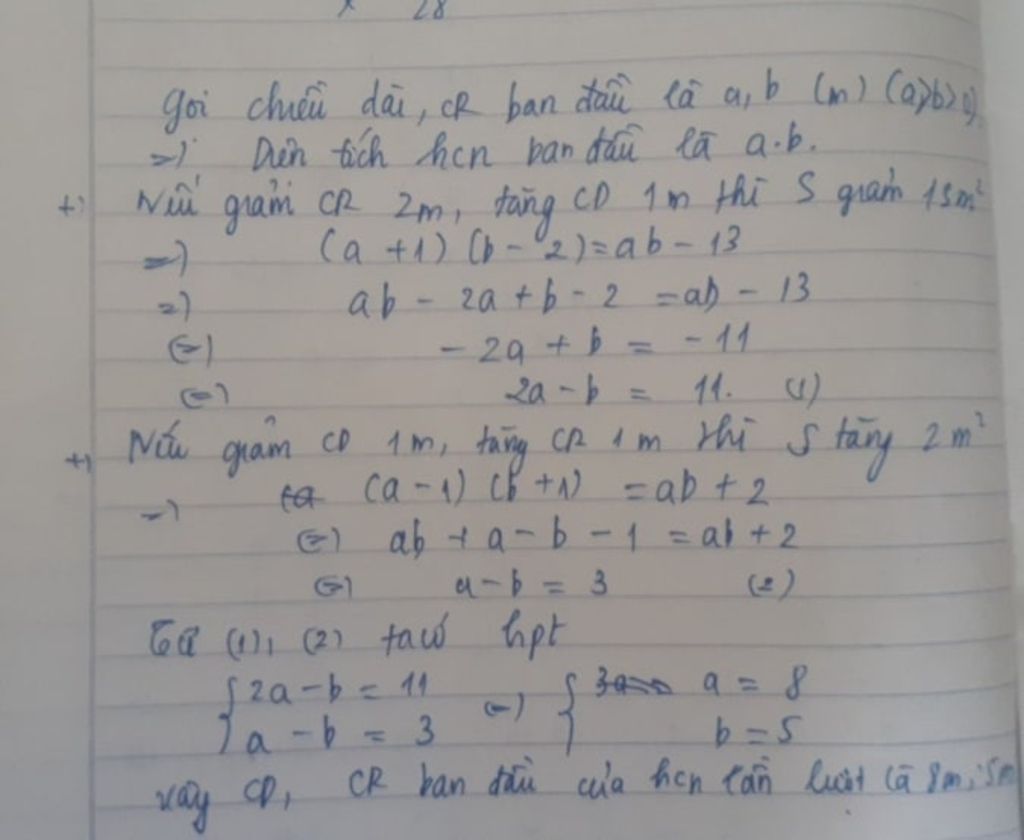 x 28
gọi chiều dài, CR ban đầu là a, b (m) (a>b>0)
=) Diện tích hcn ban đầu là a.b.
+) Nếu giảm CR 2m, tăng CD 1m thì S giảm 13m²
=) (a + 1) (b - 2) = ab - 13
=) ab - 2a + b - 2 = ab - 13
(=) - 2a + b = - 11
(=) 2a - b = 11. (1)
+) Nếu giảm CD 1m, tăng CR 1m thì S tăng 2m²
=) (a - 1) (b + 1) = ab + 2
(=) ab + a - b - 1 = ab + 2
(=) a - b = 3 (2)
Từ (1), (2) ta có hpt
{ 2a - b = 11 (=) { a = 8
a - b = 3 b = 5
vậy CD, CR ban đầu của hcn lần lượt là 8m, 5m